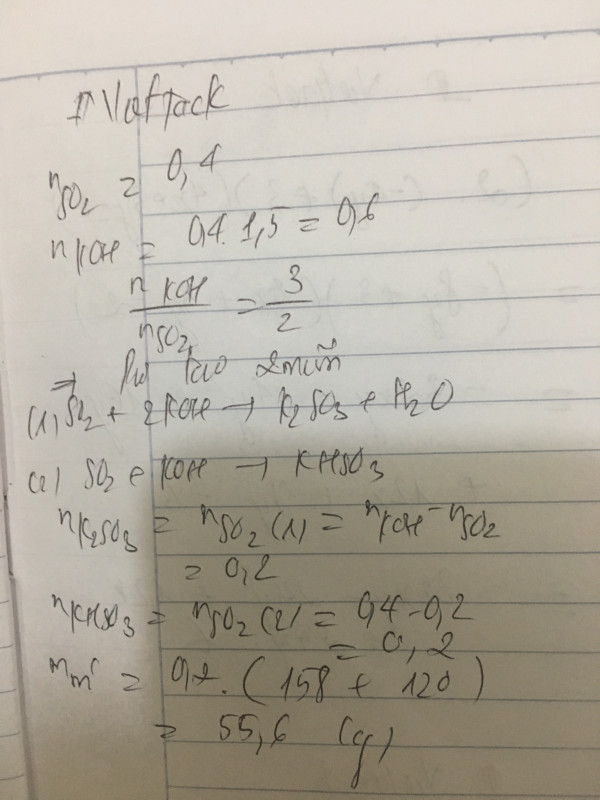 nSO2 = 0,4
nKOH = 0,4. 1,5 = 0,6
nKOH / nSO2 = 3/2
⇒ tạo 2 muối
(1) SO2 + 2KOH → K2SO3 + H2O
(2) SO2 + KOH → KHSO3
nK2SO3 = nSO2 (1) = nKOH - nSO2
= 0,2
nKHSO3 = nSO2 (2) = 0,4 - 0,2
= 0,2
= 0,2. (158 + 120)
= 55,6 (g)